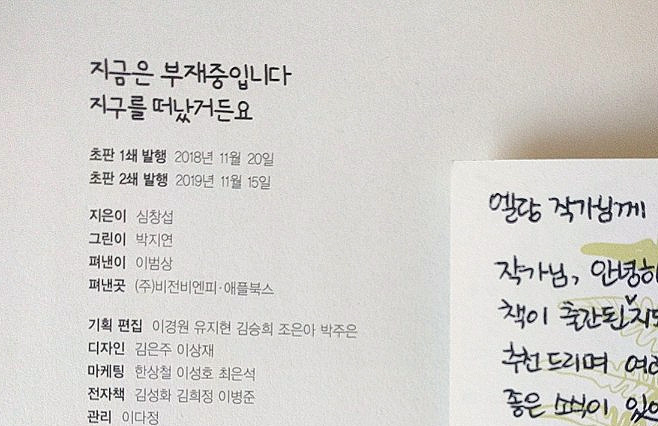 지금은 부재중입니다
지구를 떠났거든요
초판 1쇄 발행 2018년 11월 20일
초판 2쇄 발행 2019년 11월 15일
지은이 심창섭
그린이 박지연
펴낸이 이범상
펴낸곳 (주)비전비엔피·애플북스
기획 편집 이경원 유지현 김승희 조은아 박주은
디자인 김은주 이상재
마케팅 한상철 이성호 최은석
전자책 김성화 김희정 이병준
관리 이다정
엘랑 작가님께
작가님, 안녕히
책이 출간된 지도
추천드리며
좋은 소식이